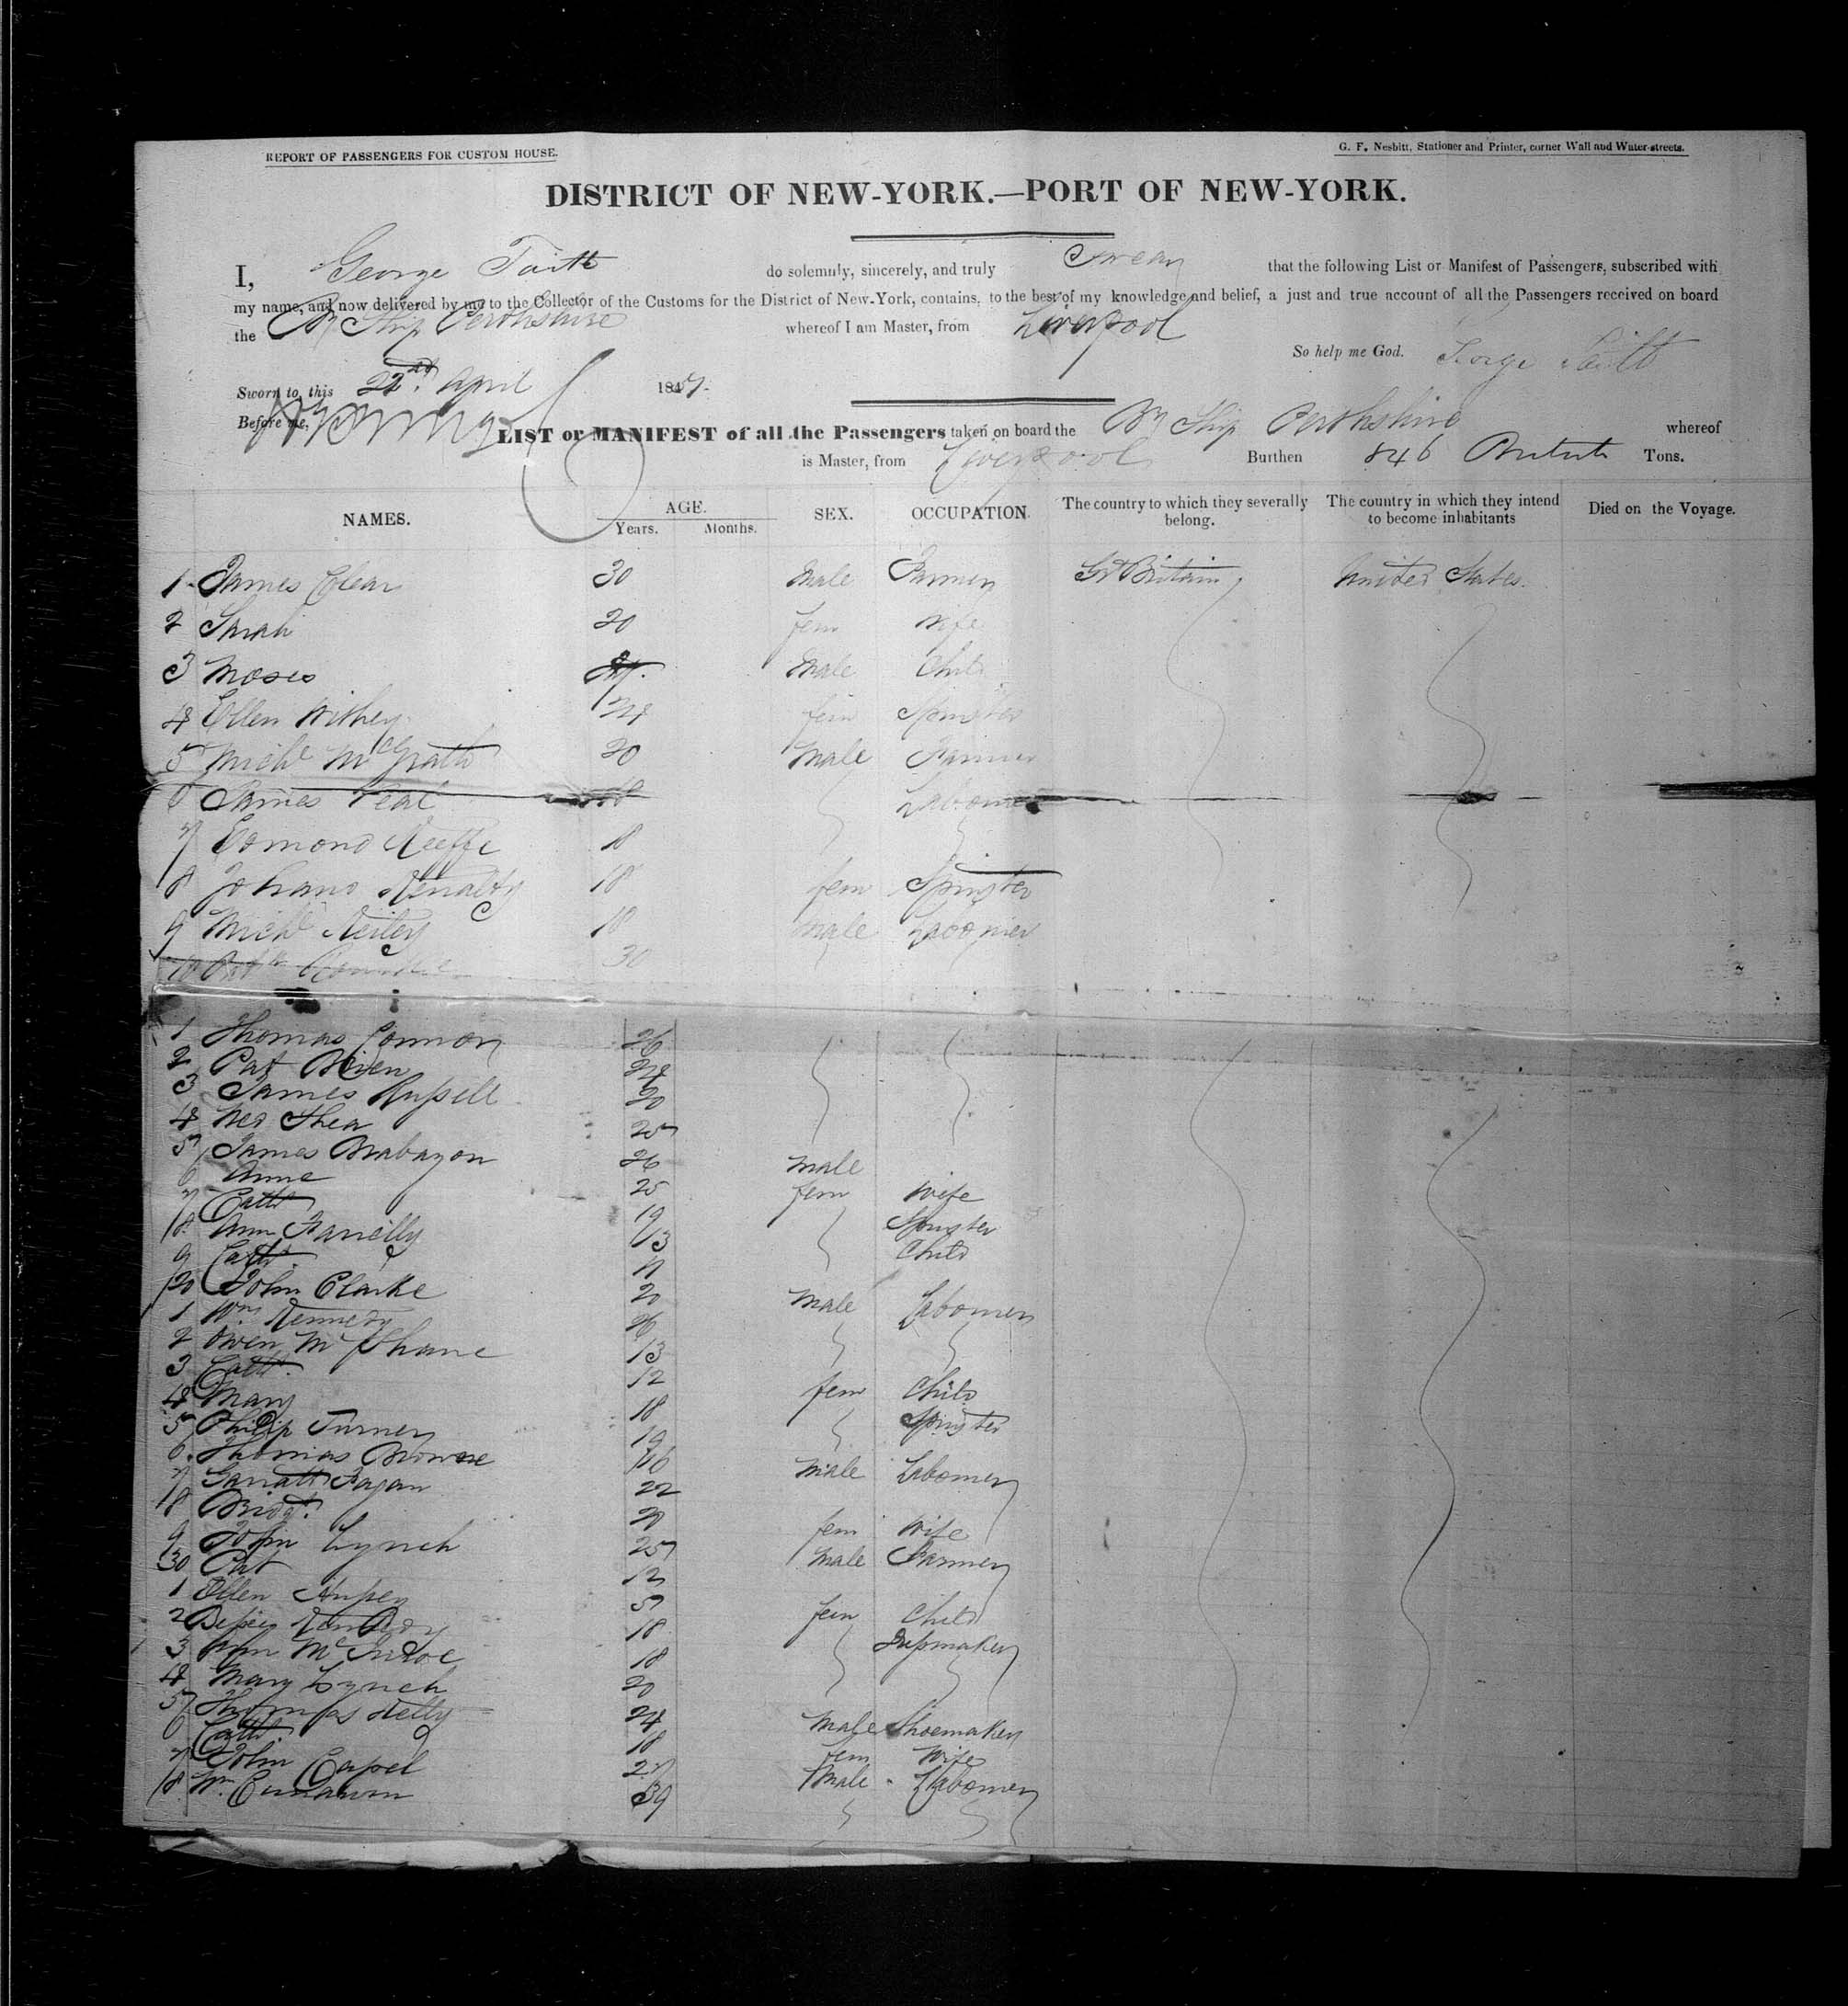 REPORT OF PASSENGERS FOR CUSTOM HOUSE.
G. F. Nesbitt, Stationer and Printer, corner Wall and Water-streets.
DISTRICT OF NEW-YORK.—PORT OF NEW-YORK.
I, George do solemnly, sincerely, and truly Swear that the following List or Manifest of Passengers, subscribed with
my name, and now delivered by me to the Collector of the Customs for the District of New-York, contains, to the best of my knowledge and belief, a just and true account of all the Passengers received on board
the Ship Perthshire whereof I am Master, from Liverpool
So help me God. George
Sworn to, this 22nd April 1847.
Before me,
LIST or MANIFEST of all the Passengers taken on board the Br Ship Perthshire whereof
is Master, from Liverpool Burthen 846 Tons.
NAMES. AGE. SEX. OCCUPATION. The country to which they severally belong. The country in which they intend to become inhabitants Died on the Voyage.
Years. Months.
1 James Clear 30 Male Farmer Gt Britain United States.
2 Sarah 20 fem Wife
3 Moses Male Child
4 Ellen Withey 24 fem Spinster
5 Michl McGrath 20 Male Farmer
6 James 18 Labourer
7 Edmond Keeffe 18
8 18 fem Spinster
9 Michl 18 Male Labourer
10 30
1 Thomas Connor 26
2 Pat Brien 24
3 James Russell 20
4 Ned Shea 25
5 James Brabazon 26 Male
6 Anne 25 fem Wife
7 Cath 19 Spinster
8 Ann Farrelly 13 Child
9 Cath 11
20 John Clarke 20 Male Labourer
1 Wm Kennedy 26
2 Owen McShane 13
3 Cath. 12 fem Child
4 Mary 18 Spinster
5 Philip Turner 19
6 Thomas Browne 16 Male Labourer
7 Garratt Fagan 22
8 Bridgt. fem Wife
9 John Lynch 25 Male Farmer
30 Pat 12
1 Ellen 5 fem Child
2 Bessy 18 Dressmaker
3 18
4 Mary Lynch 20
5 Thomas Kelly 24 Male Shoemaker
6 Cath. 18 fem Wife
7 John Capel 27 Male Labourer
8 Wm 39